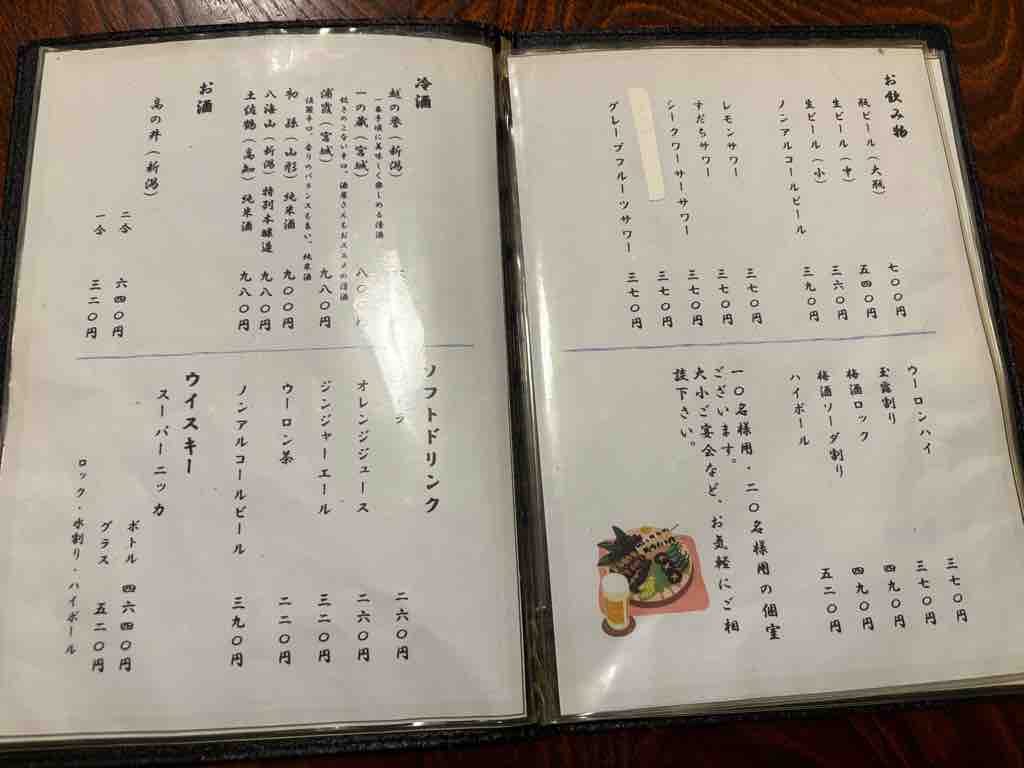 お飲み物
瓶ビール(大瓶) 七〇〇円
生ビール(中) 五四〇円
生ビール(小) 三六〇円
ノンアルコールビール 三九〇円
レモンサワー 三七〇円
すだちサワー 三七〇円
シークワーサーサワー 三七〇円
グレープフルーツサワー 三七〇円
ウーロンハイ 三七〇円
玉露割り 三七〇円
梅酒ロック 四九〇円
梅酒ソーダ割り 四九〇円
ハイボール 五二〇円
一〇名様用・二〇名様用の個室
ございます。
大小ご宴会など、お気軽にご相
談下さい。
冷酒
越の誉(新潟)
一番手頃に美味しく楽しめる冷酒
一の蔵(宮城) 八〇〇円
飽きのこない辛口、酒屋さんもおススメの冷酒
浦霞(宮城) 九八〇円
淡麗辛口、香りのバランスも良い、純米酒
初孫(山形)純米酒 九〇〇円
八海山(新潟)特別本醸造 九八〇円
土佐鶴(高知)純米酒 九八〇円
お酒
高の井(新潟)
二合 六四〇円
一合 三二〇円
ソフトドリンク
二六〇円
オレンジジュース 二六〇円
ジンジャーエール 三二〇円
ウーロン茶 二二〇円
ノンアルコールビール 三九〇円
ウイスキー
スーパーニッカ
ボトル 四六四〇円
グラス 五二〇円
ロック・水割り・ハイボール